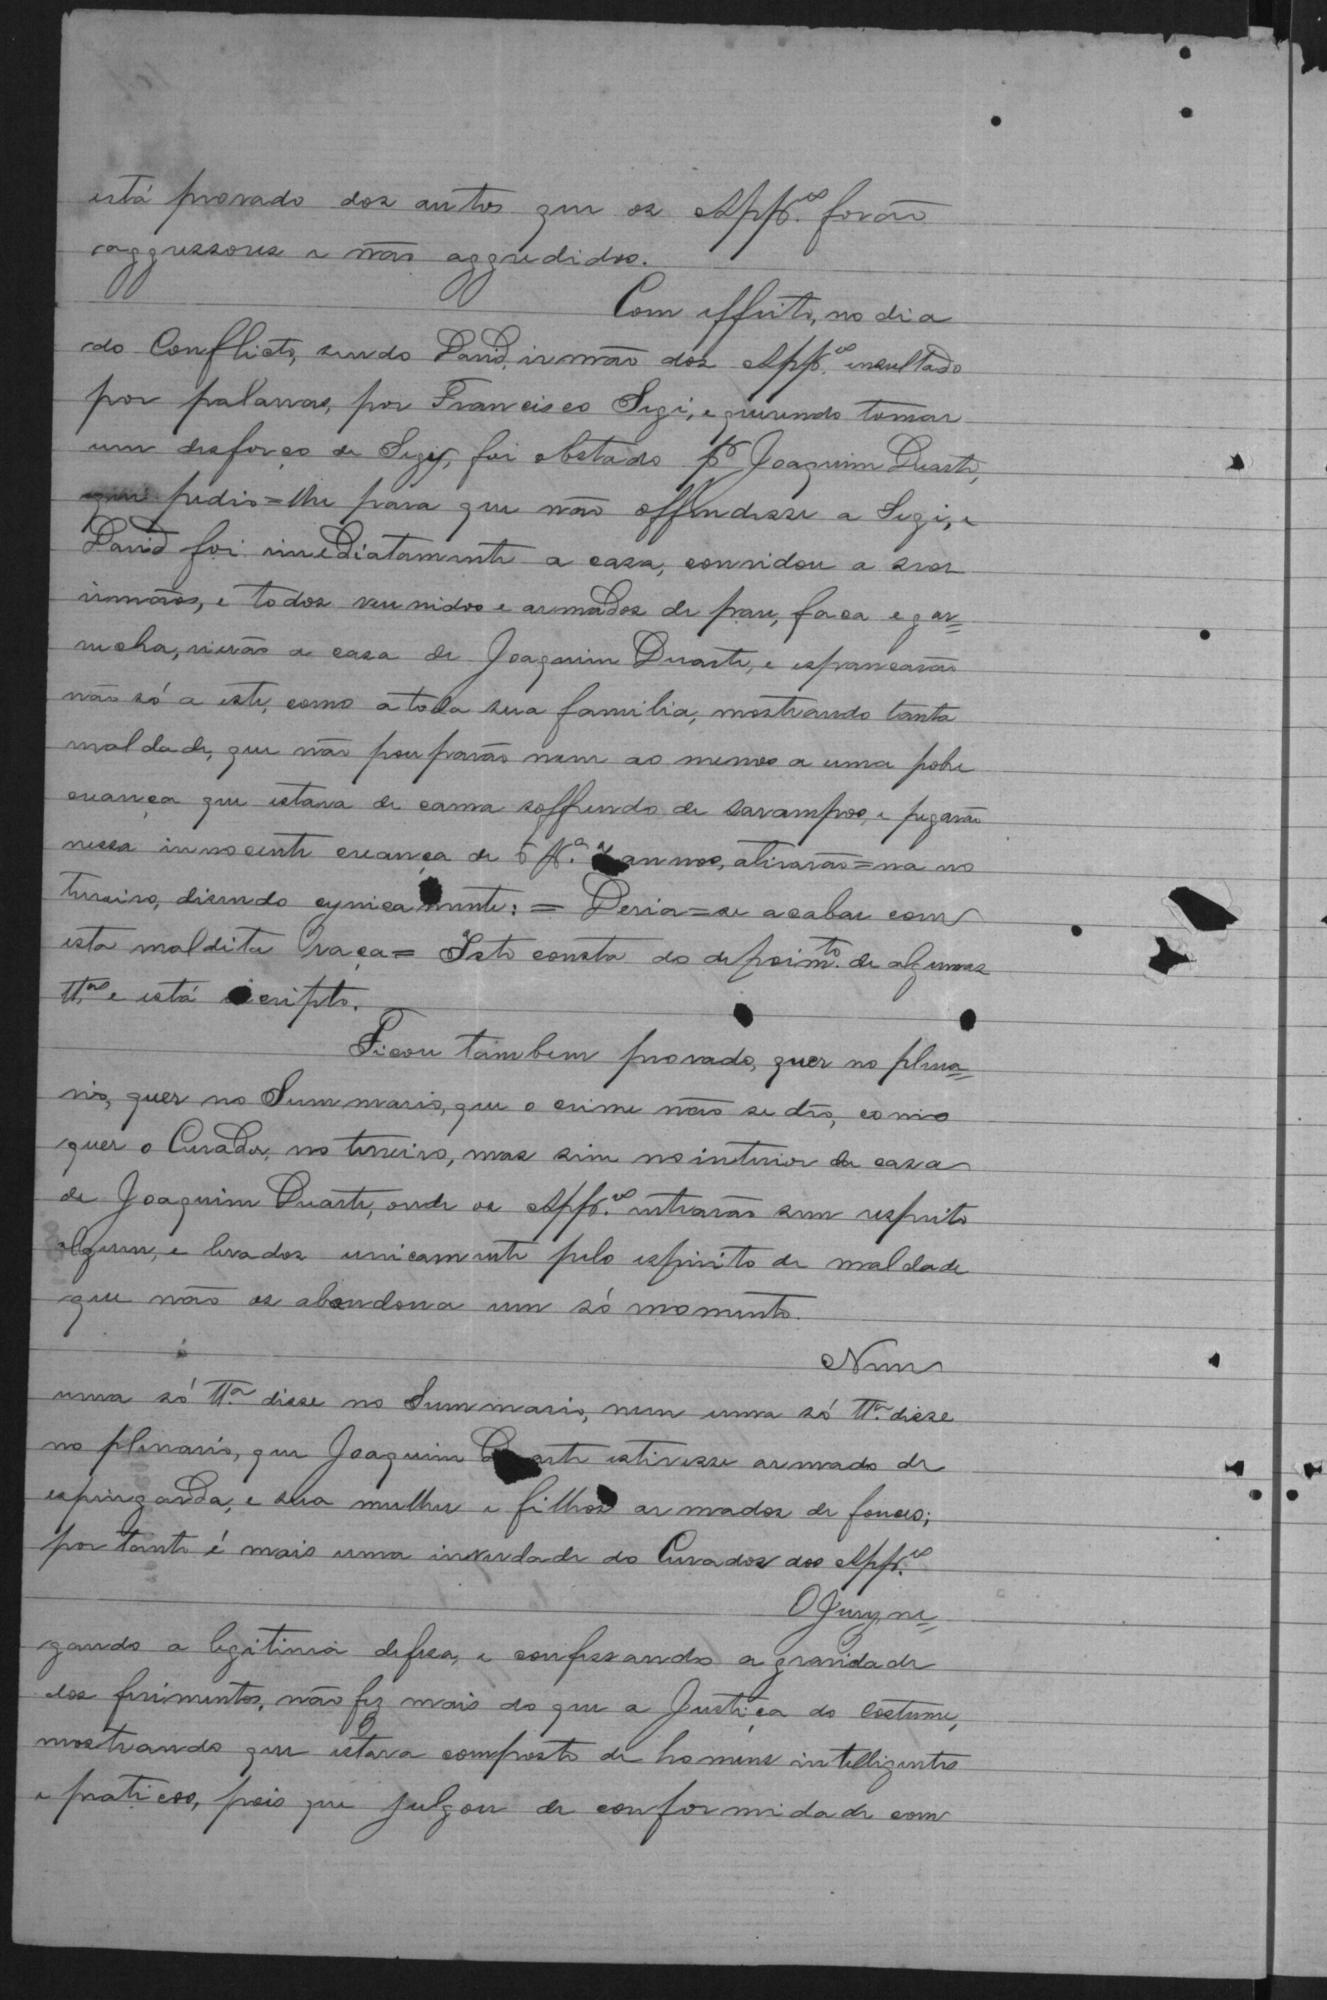 está provado dos autos que os App.es forão
aggressores e não aggredidos.
Com effeito, no dia
do Conflicto, sendo David, irmão dos App.es insultado
por palavras, por Francisco Segi, e querendo tomar
um desforço de Segy, foi obstado pr Joaquim Duarte,
que pedio=lhe para que não offendesse a Segi, e
David foi imediatamente a casa, convidou a seos
irmãos, e todos reunidos e armados de pau, faca e gar=
rucha, vierão a casa de Joaquim Duarte, e espancarão
não só a este, como a toda sua familia, mostrando tanta
maldade, que não pouparão nem ao menos a uma pobre
creança que estava de cama soffrendo de sarampos, e pegarão
nessa innocente creança de 6 pa. annos, atirarão=na no
terreiro, disendo cynicamente: = Deria=se acabar com
esta maldita raça= Isto consta do depoimto. de algumas
TT.as e está escripto.
Ficou tambem provado, quer no plena=
rio, quer no Summario, que o crime não se dêo, como
quer o Curador, no terreiro, mas sim no interior da casa
de Joaquim Duarte, onde os App.es entrarão sem respeito
algum, e levados unicamente pelo espirito de maldade
que não os abandona um só momento.
Nem
uma só TT.a disse no Summario, nem uma só TT.a disse
no plenario, que Joaquim Duarte estivesse armado de
espingarda, e sua mulher e filhos armados de fouces;
portanto é mais uma inverdade do Curador dos App.es
O Jury, ne=
gando a legitima defesa, e confessando a gravidade
dos ferimentos, não fez mais do que a Justiça do costume,
mostrando que estava composto de homens intelligentes
e praticos, pois que julgou de conformidade com